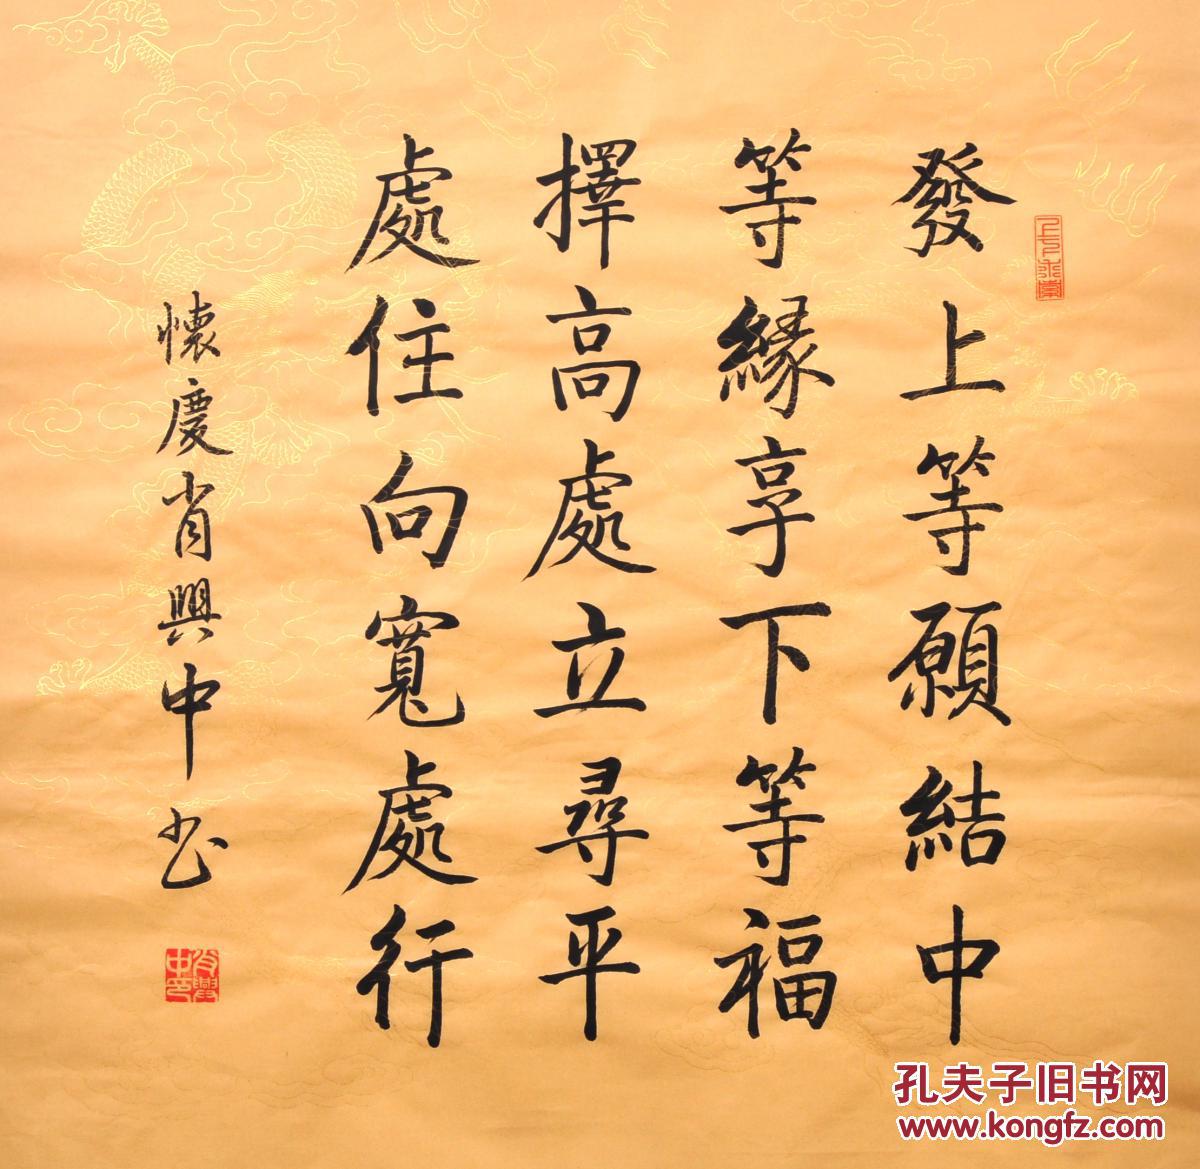 發上等願結中
等緣享下等福
擇高處立尋平
處住向寬處行
懷慶肖興中书
孔夫子旧书网
www.kongfz.com